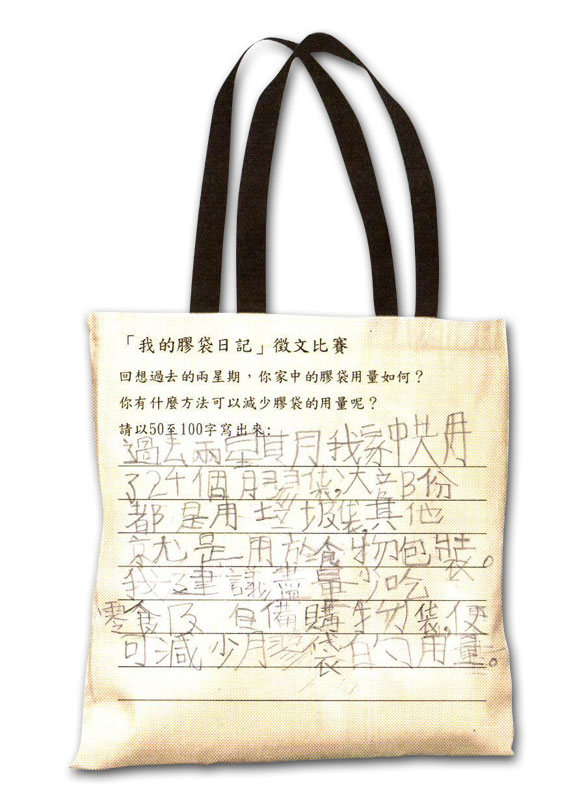 「我的膠袋日記」徵文比賽
回想過去的兩星期，你家中的膠袋用量如何？
你有什麼方法可以減少膠袋的用量呢？
請以50至100字寫出來:
過去兩星期我家中共用
了24個膠袋。大部份
都是用垃圾袋。其他
就是用於食物包裝。
我建議盡量少吃
零食及自備購物袋。便
可減少膠袋的用量。